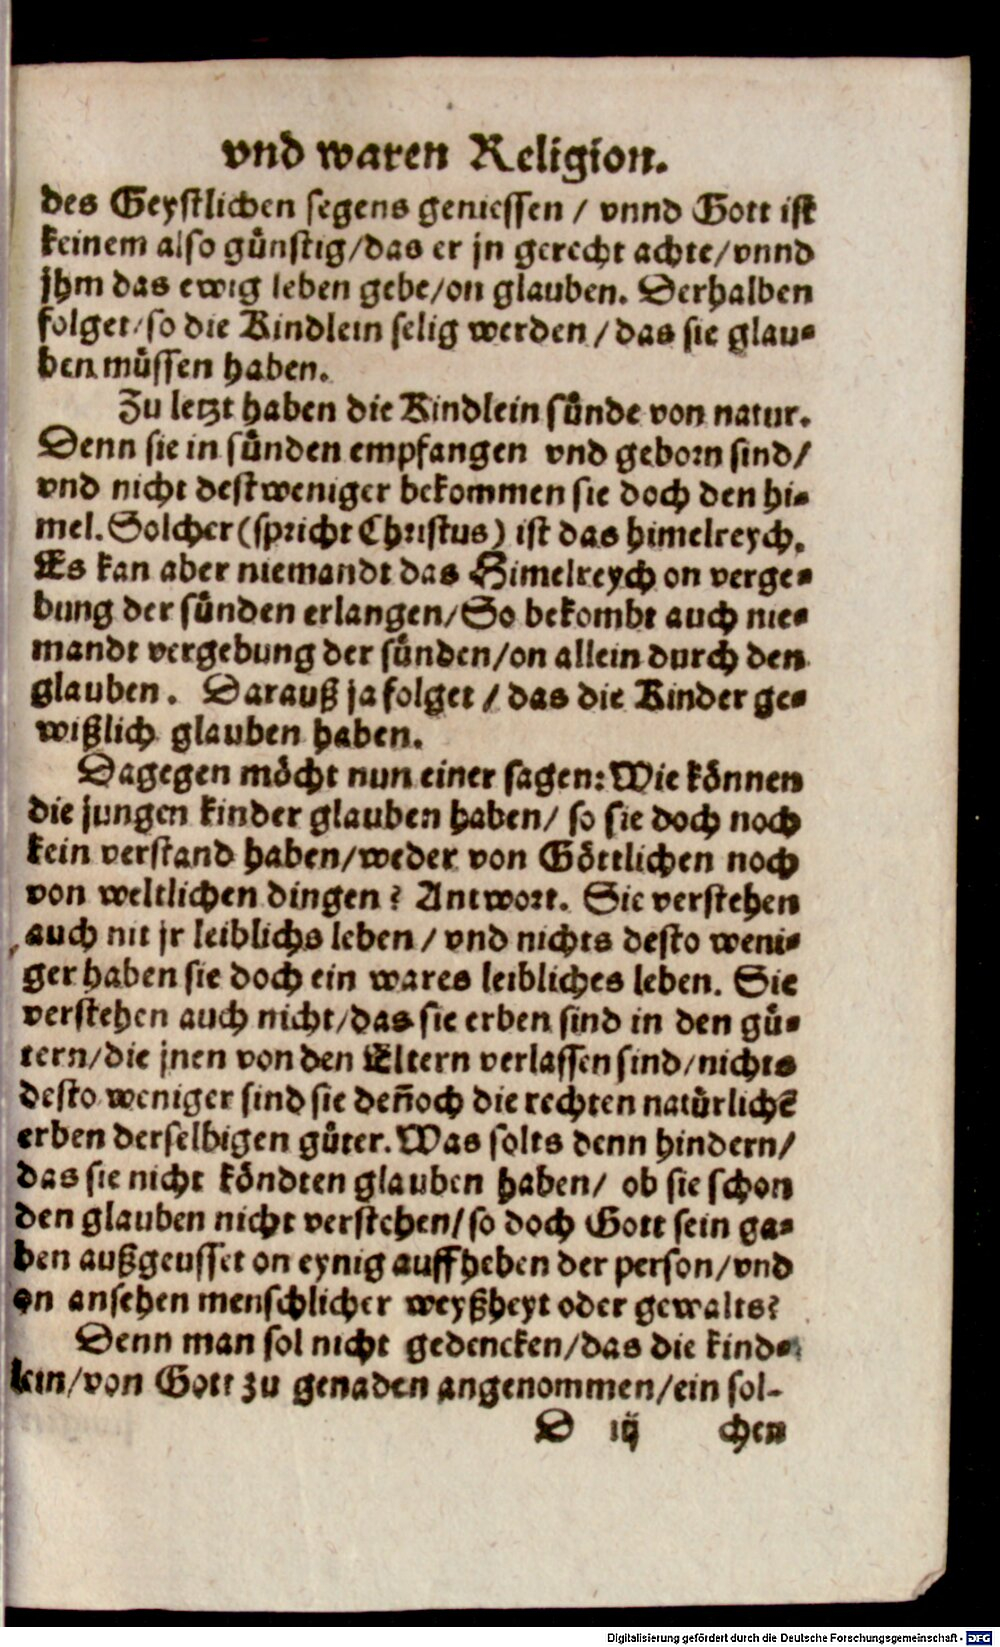 vnd waren Religion.
des Geystlichen segens geniessen / vnnd Gott ist
keinem also gůnstig/das er jn gerecht achte/vnnd
jhm das ewig leben gebe/on glauben. Derhalben
folget/so die Kindlein selig werden / das sie glau-
ben můssen haben.
Zu letzt haben die Kindlein sůnde von natur.
Denn sie in sůnden empfangen vnd geborn sind/
vnd nicht destweniger bekommen sie doch den hi-
mel. Solcher (spricht Christus) ist das himelreych.
Es kan aber niemandt das Himelreych on verge-
bung der sůnden erlangen/So bekombt auch nie-
mandt vergebung der sůnden/on allein durch den
glauben. Darauß ja folget / das die Kinder ge-
wißlich glauben haben.
Dagegen mőcht nun einer sagen: Wie kőnnen
die jungen kinder glauben haben/ so sie doch noch
kein verstand haben/weder von Gőttlichen noch
von weltlichen dingen? Antwort. Sie verstehen
auch nit jr leiblichs leben / vnd nichts desto weni-
ger haben sie doch ein wares leibliches leben. Sie
verstehen auch nicht/das sie erben sind in den gů-
tern/die jnen von den Eltern verlassen sind/nichts
desto weniger sind sie deñoch die rechten natůrlichẽ
erben derselbigen gůter. Was solts denn hindern/
das sie nicht kőndten glauben haben/ ob sie schon
den glauben nicht verstehen/so doch Gott sein ga-
ben außgeusset on eynig auffheben der person/vnd
on ansehen menschlicher weyßheyt oder gewalts?
Denn man sol nicht gedencken/das die kind-
lein/von Gott zu genaden angenommen/ein sol-
D iij chen
Digitalisierung gefördert durch die Deutsche Forschungsgemeinschaft - DFG